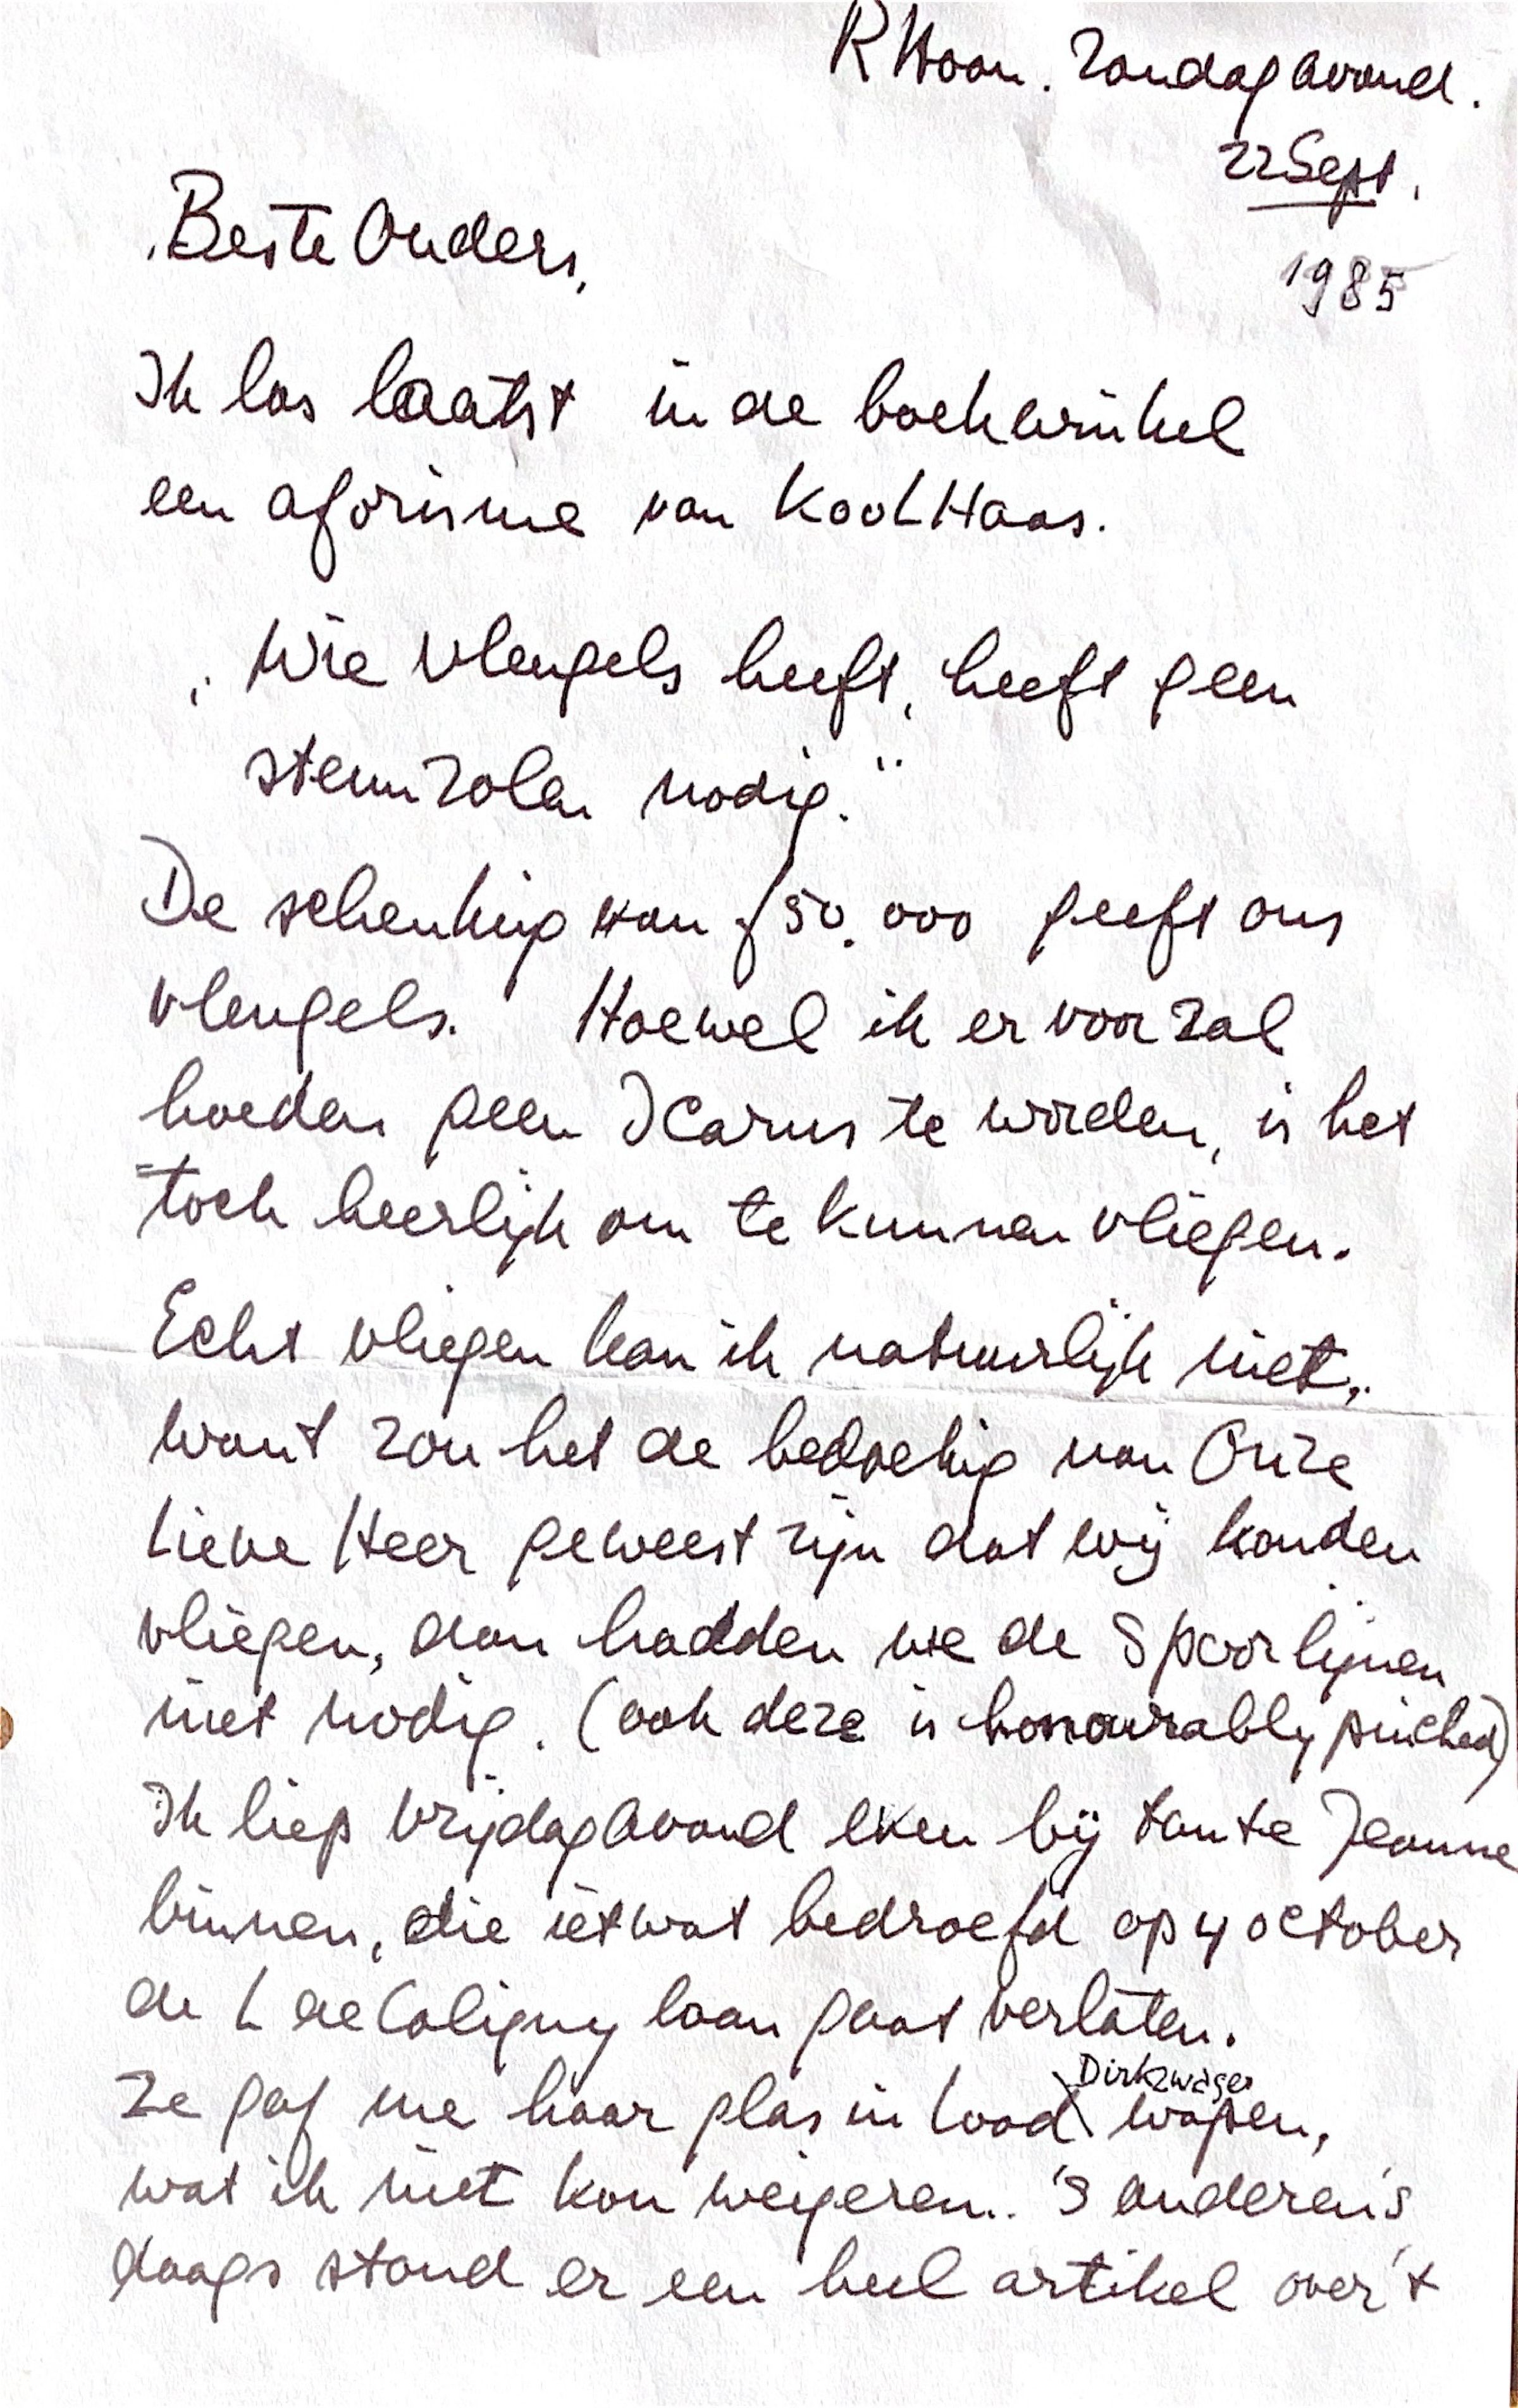 RHoon. Zondagavond.
22 Sept.
1985
Beste Ouders,
Ik las laatst in de boekwinkel
een aforisme van KoolHaas.
„Wie vleugels heeft, heeft geen
steunzolen nodig."
De schenking van ƒ50.000 geeft ons
vleugels. Hoewel ik er voor zal
hoeden geen Icarus te worden, is het
toch heerlijk om te kunnen vliegen.
Echt vliegen kan ik natuurlijk niet,
want zou het de bedoeling van Onze
Lieve Heer geweest zijn dat wij konden
vliegen, dan hadden we de Spoorlijnen
niet nodig. (ook deze is honourably pinched)
Ik liep Vrijdagavond even bij tante Jeanne
binnen, die ietwat bedroefd op 4 october
de L de Coligny laan gaat verlaten.
Ze gaf me haar glas in lood Dirkzwager wapen,
wat ik niet kon weigeren. 's anderen's
daags stond er een heel artikel over 't